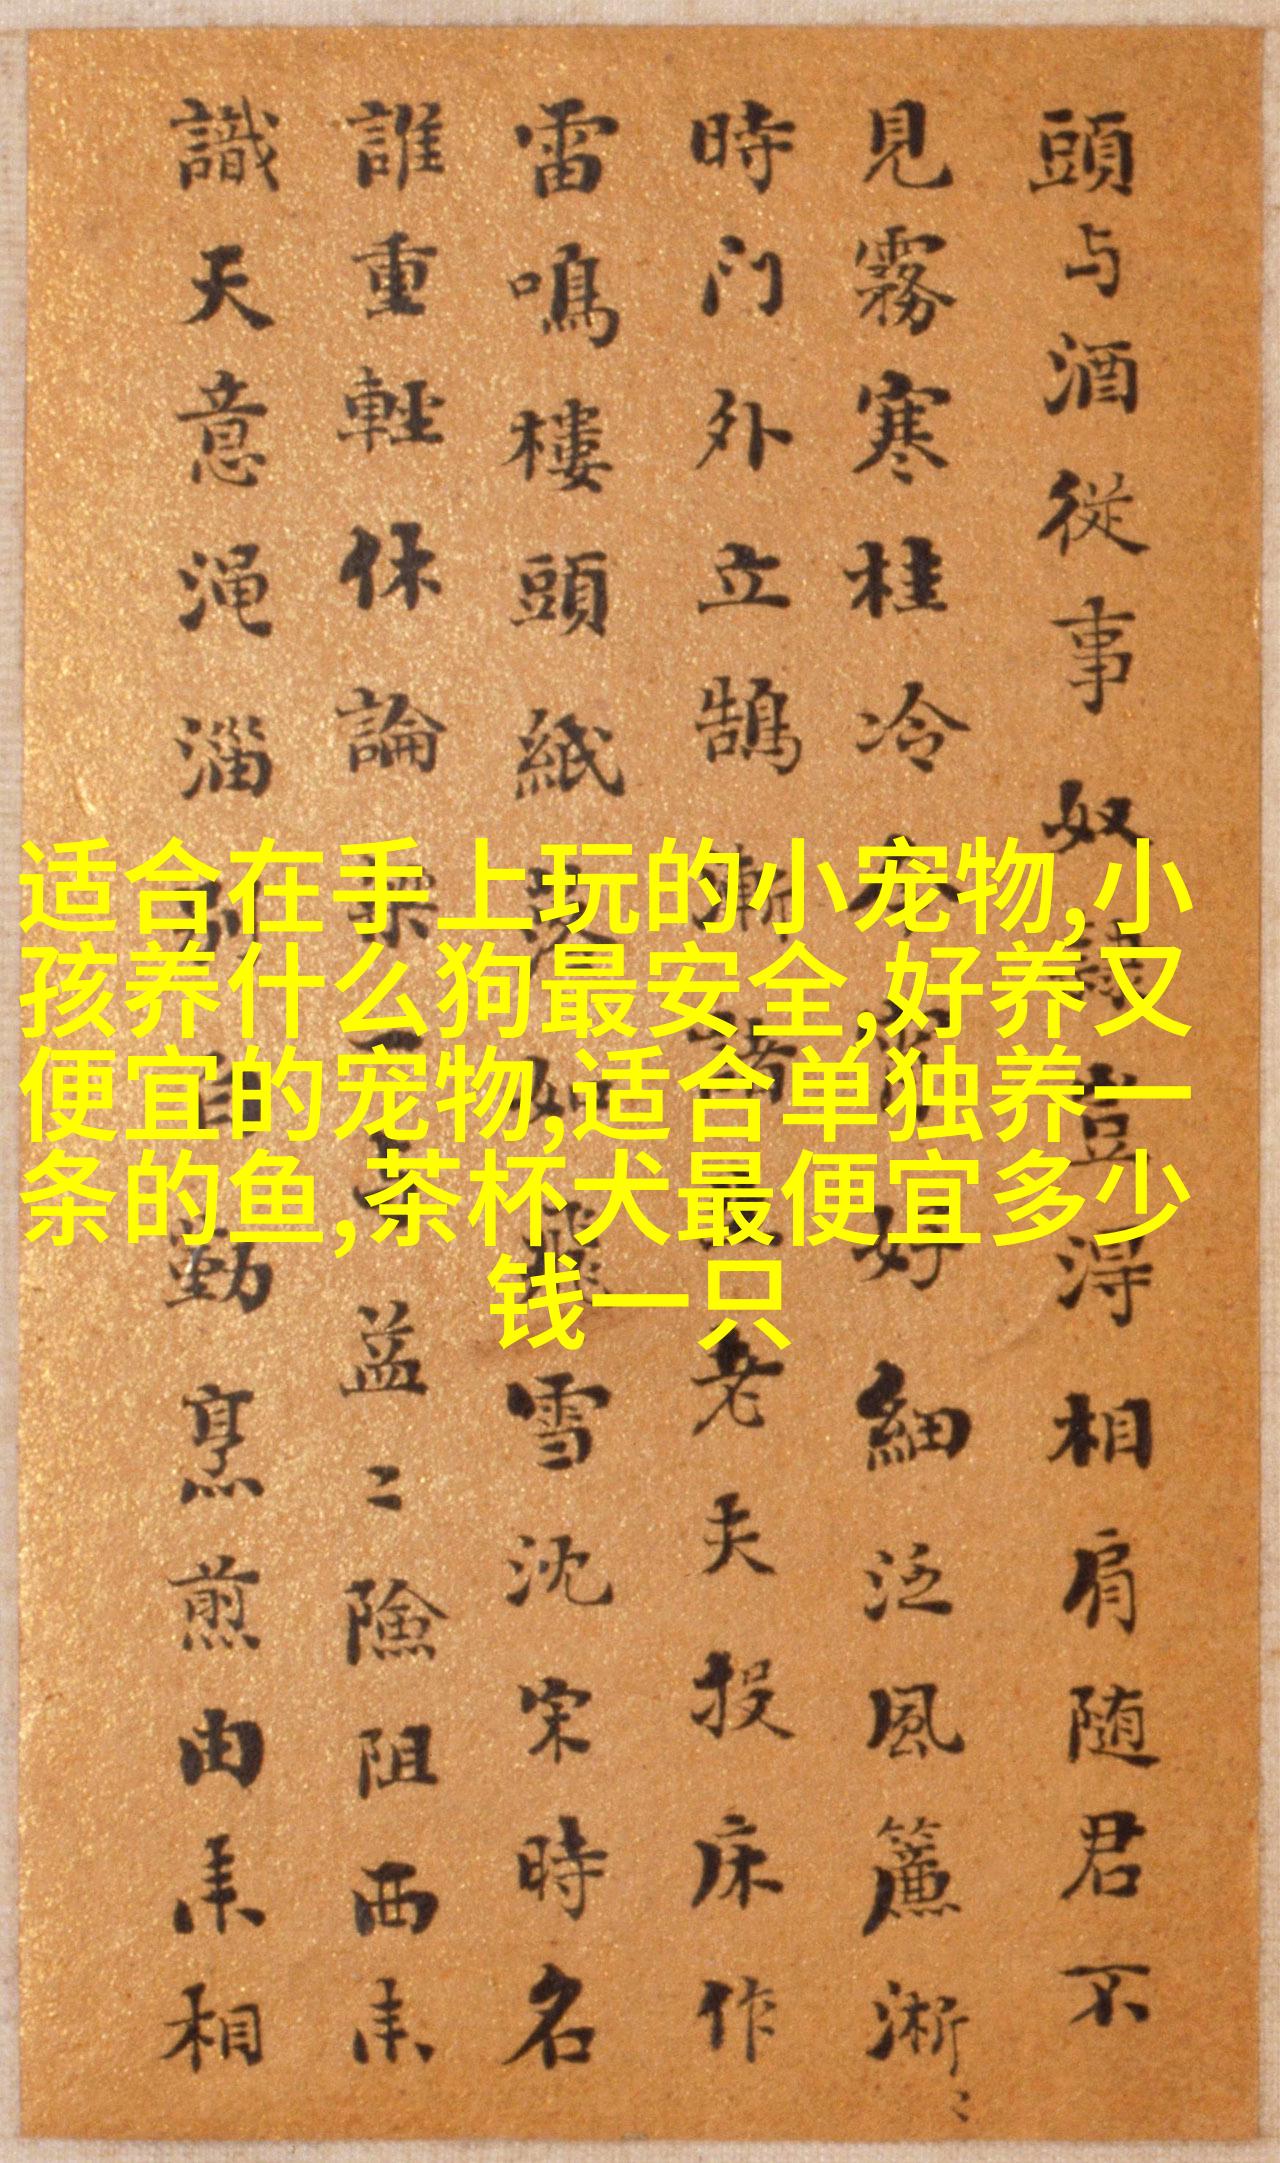 頭与酒從事奴豈得相肩随君不
見霧寒桂冷好細泛風簾淅〻
時门外立鵠老夫投床作
雷鳴樓頭紙雪沈宋時名
誰重輕休論益〻險阻西来
識天意渑淄勤烹煎由来相
适合在手上玩的小宠物,小
孩养什么狗最安全,好养又
便宜的宠物,适合单独养一
条的鱼,茶杯犬最便宜多少
钱一只